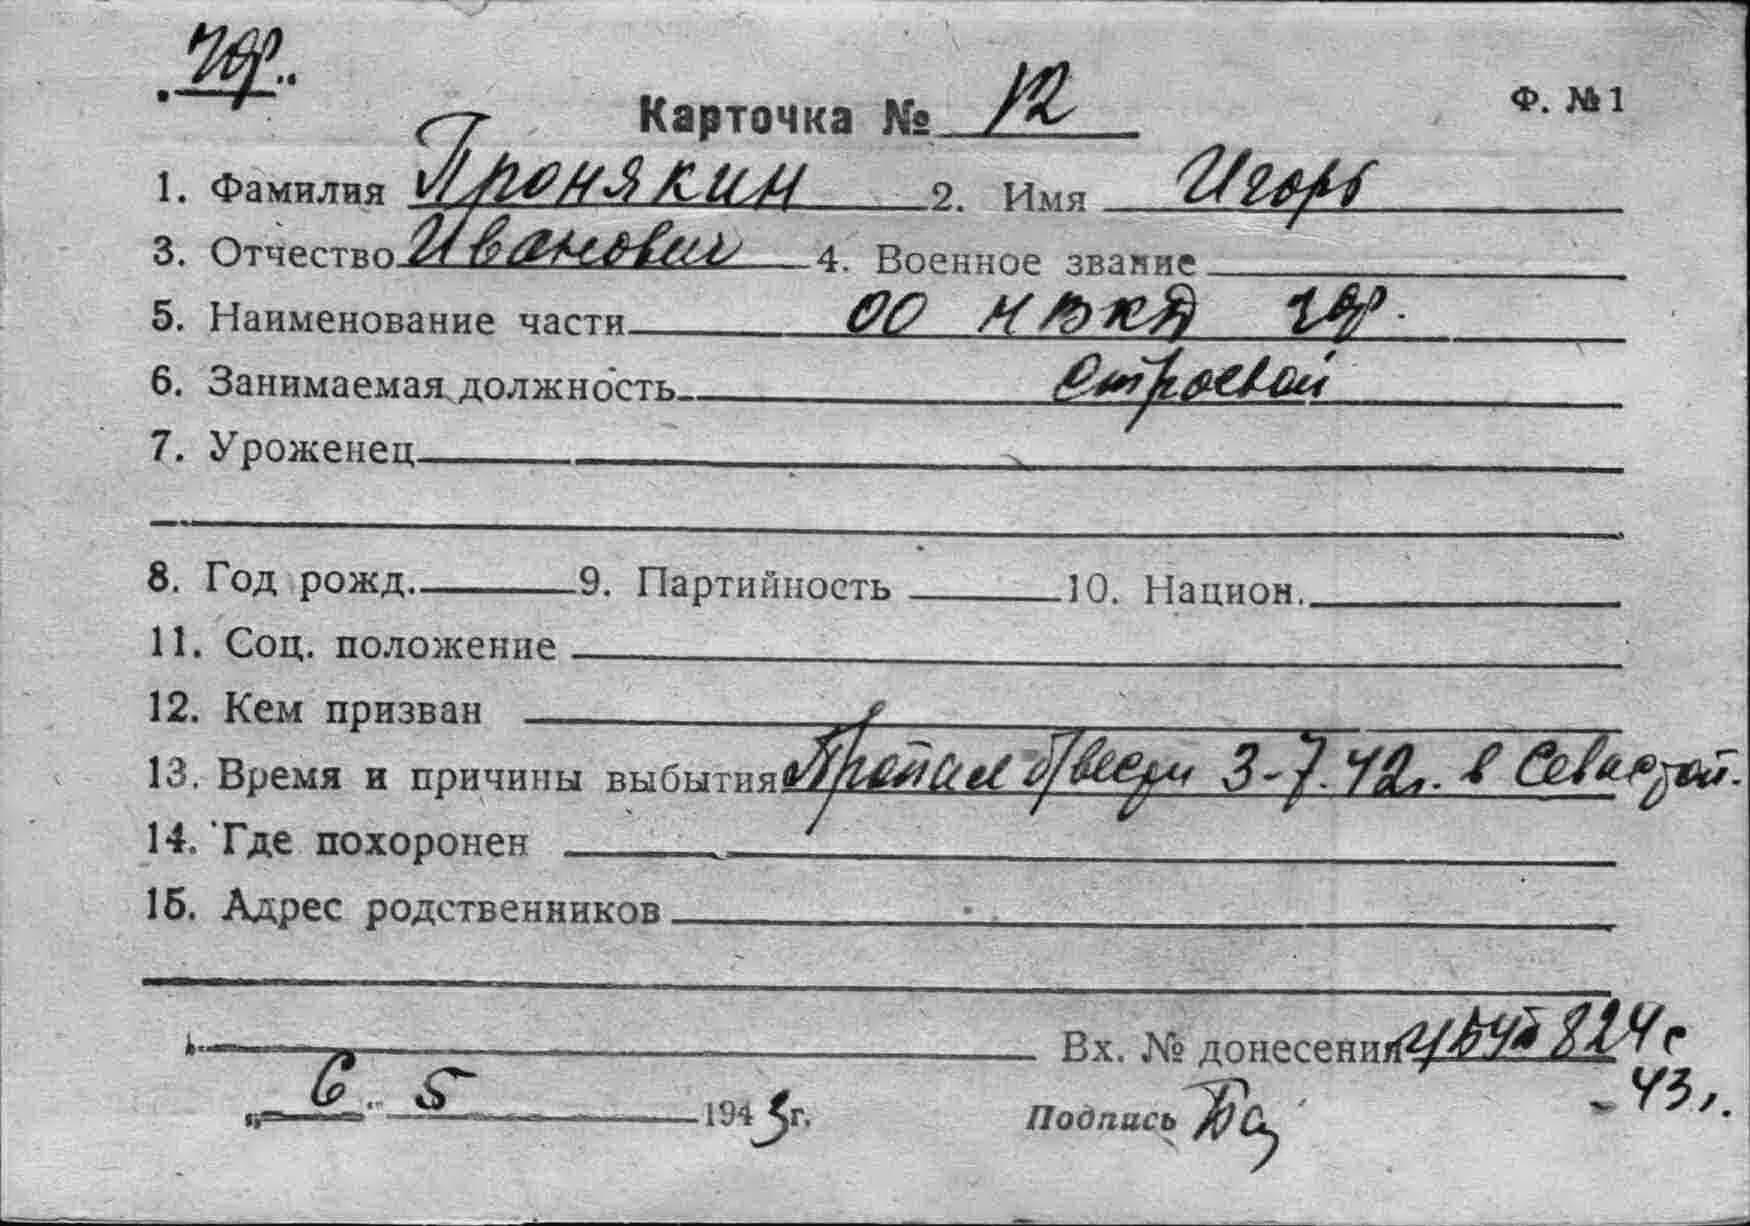 ЧФ.
Карточка № 12
Ф. № 1
1. Фамилия Пронякин 2. Имя Игорь
3. Отчество Иванович 4. Военное звание
5. Наименование части ОО НВКД ЧФ.
6. Занимаемая должность Строевой
7. Уроженец
8. Год рожд. 9. Партийность 10. Национ.
11. Соц. положение
12. Кем призван
13. Время и причины выбытия Пропал б/вести 3-7.42г. в Севастоп.
14. Где похоронен
15. Адрес родственников
Вх. № донесения 824с
-43г.
„ 6 " 5 1943г. Подпись